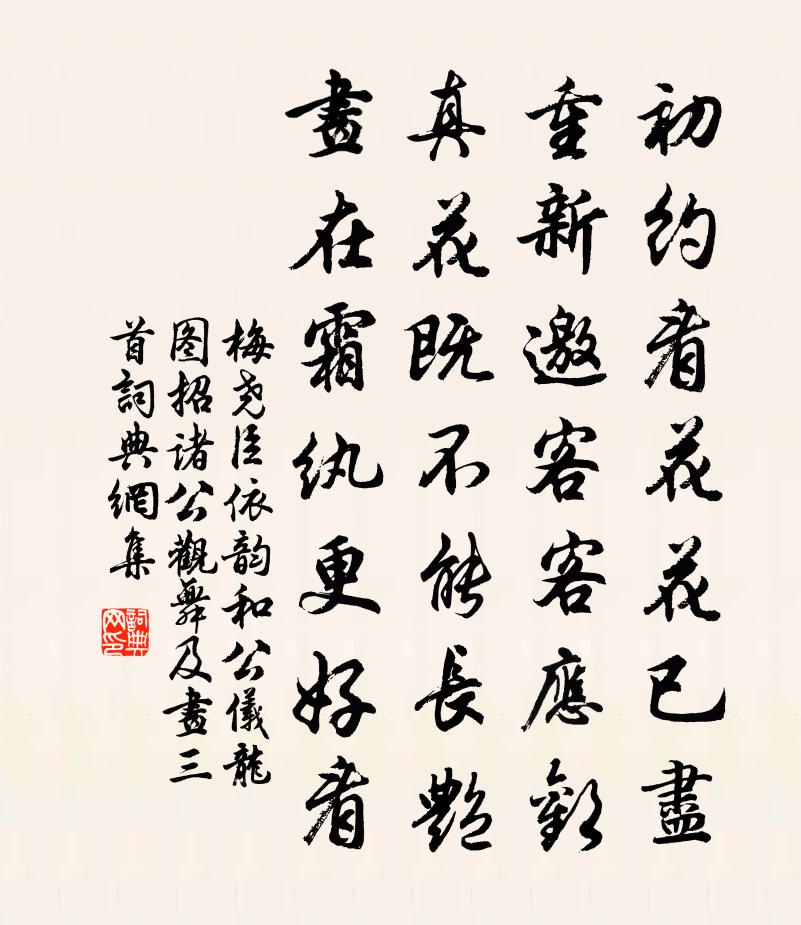 初約看花花已盡
重新邀客客應歡
真花既不能長艷
畫在霜紈更好看
梅堯臣依韵和公儀龍
圖招諸公觀舞及畫三
首詞典網集
詞典网印